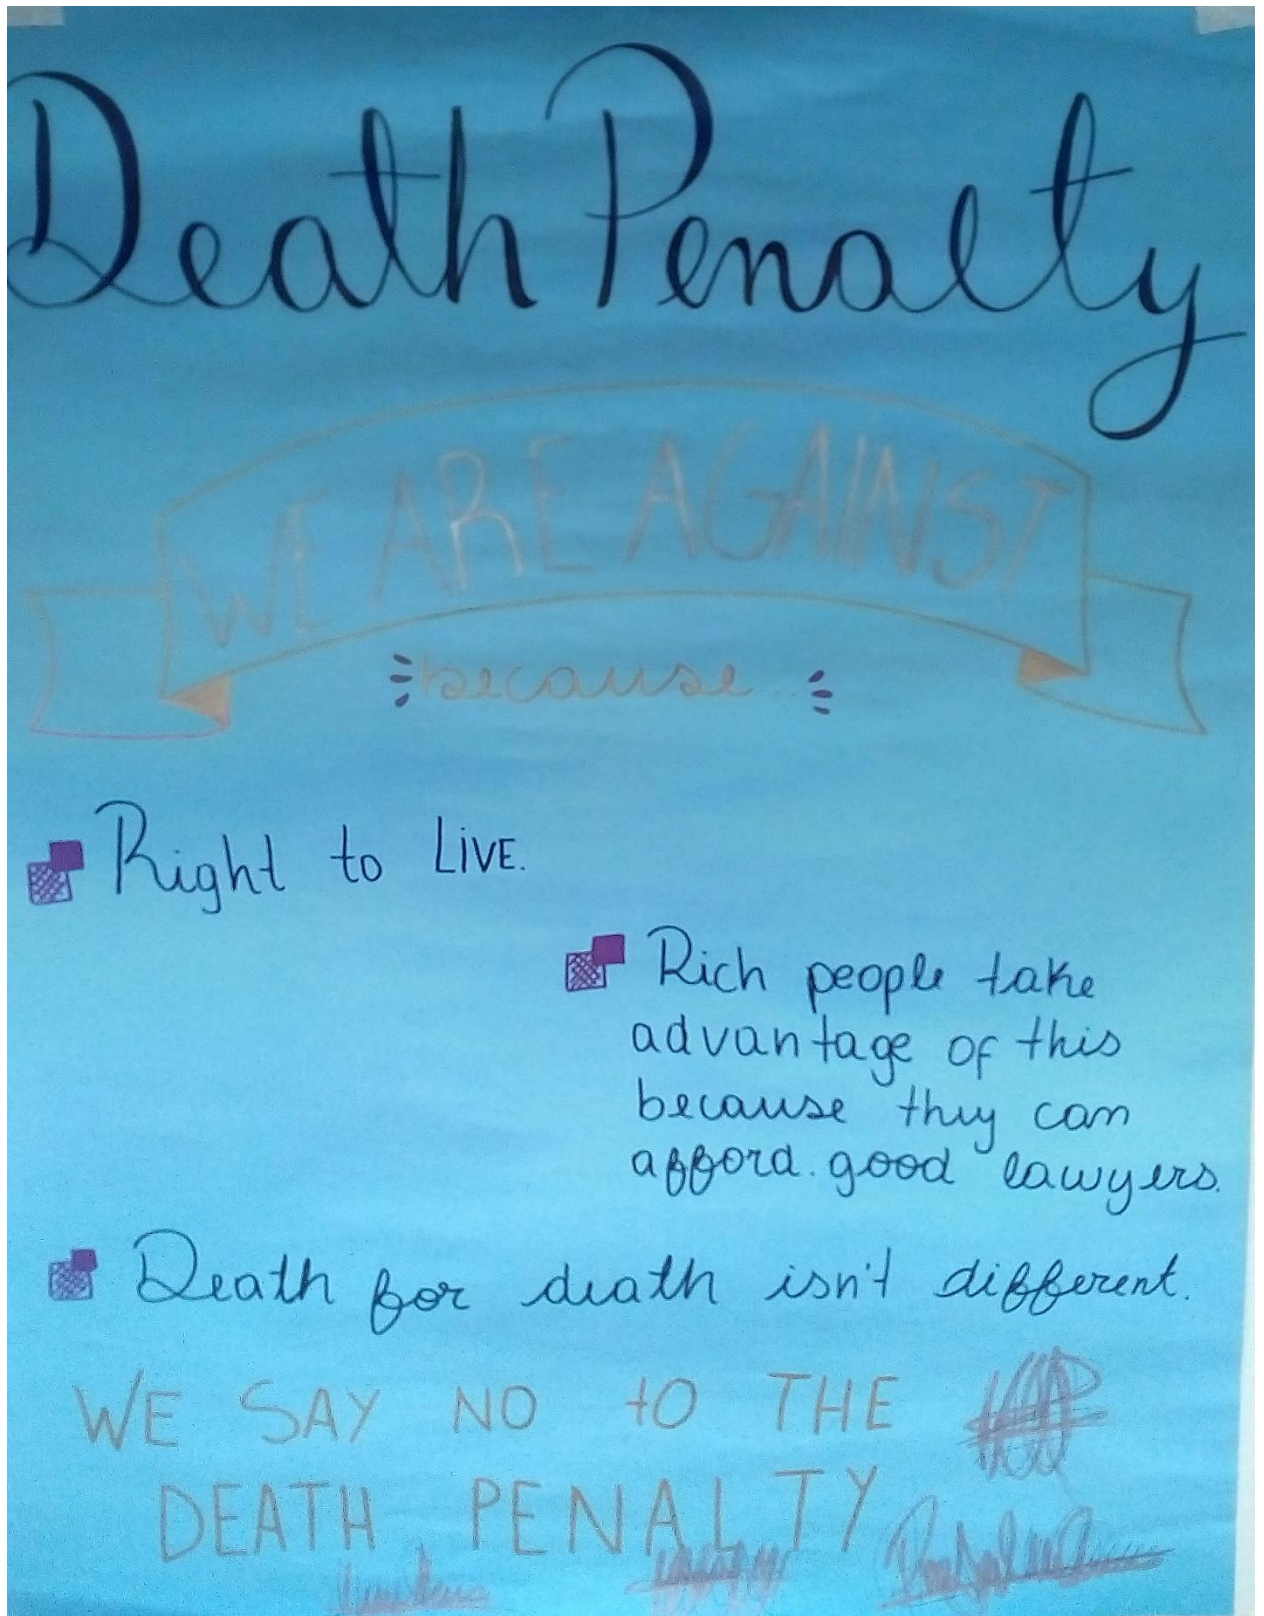 Death Penalty
WE ARE AGAINST
because
Right to LIVE.
Rich people take
advantage of this
because they can
afford. good lawyers.
Death for death isn't different.
WE SAY NO to THE
DEATH PENALTY